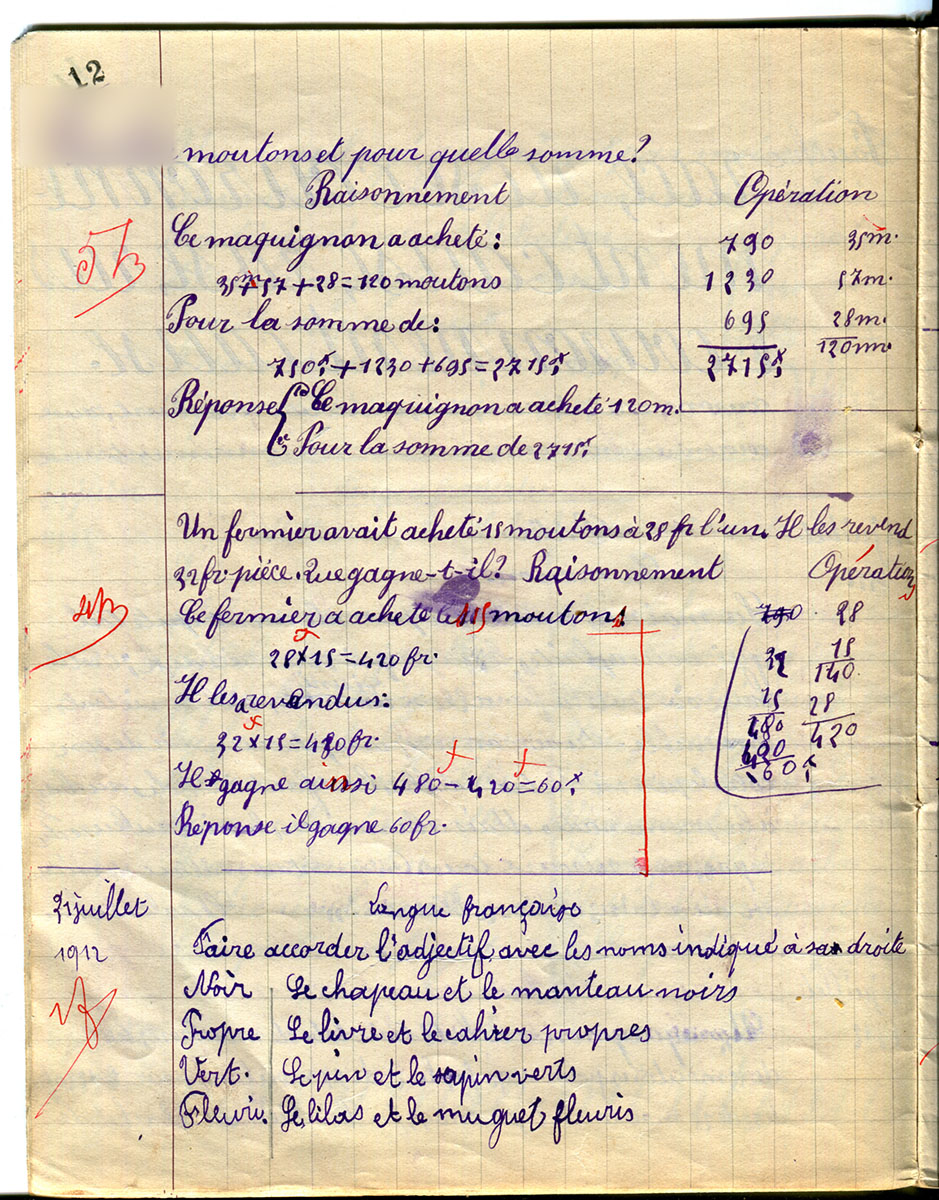 12
moutons et pour quelle somme?
Raisonnement Opération
Ce maquignon a acheté:
790 35m.
35m+57+28=120 moutons
1230 57m.
Pour la somme de:
695 28m.
2715f 120m.
750f+1230+695=2715f
Réponse 1o Ce maquignon a acheté 120m.
Pour la somme de 2715f
Un fermier avait acheté 15 moutons à 28 fr l'un. Il les revend
32 fr. pièce. Que gagne-t-il? Raisonnement Opération
Ce fermier a acheté le 15 moutons
790 28
28×15=420 fr.
32 15
140
Il les a revendus:
15 28
32×15=480 fr.
480 420
420
60f
Il gagne ainsi 480-420=60f
Réponse il gagne 60 fr.
21 juillet Langue française
1912 Faire accorder l'adjectif avec les noms indiqué à sa droite
Noir Le chapeau et le manteau noirs
Propre Le livre et le cahier propres
Vert. Le pin et le sapin verts
Fleuri. Le lilas et le muguet fleuris